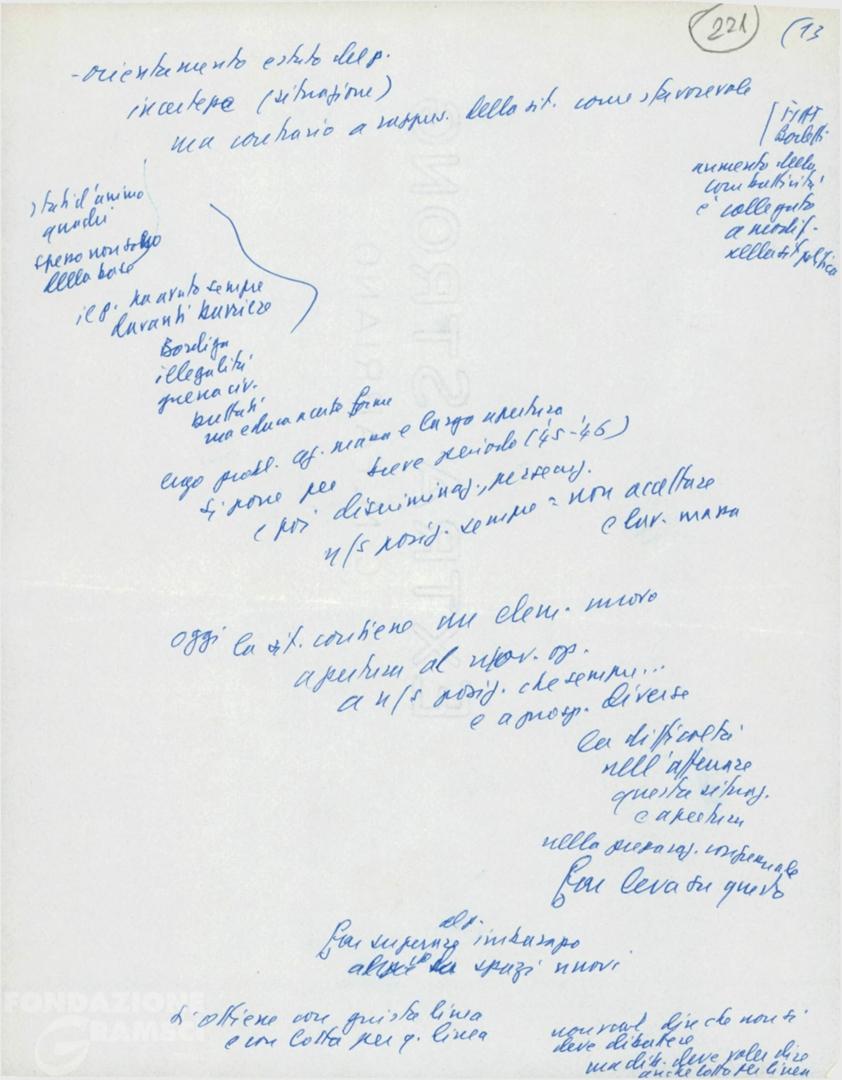 221 (13
- orientamento estuto del p.
incertezze (situazione)
ma contrario a rappres. della sit. come sfavorevole
FIAT
Borletti
aumento della
combattività
è collegato
a modif.
nella sit. politica
stati d'animo
quadri
spesso non solo
della base
il p. ha avuto sempre
davanti barriere
Bordiga
illegalità
guerra civ.
battuti
ma educa a certe forme
ergo probl. org. massa e larga apertura
si pone per breve periodo ('45-'46)
e poi discriminaz., persecuz.
n/s posiz. sempre = non accettare
e lav. massa
oggi la sit. contiene un elem. nuovo
apertura al mov. op.
a n/s posiz. che sempre...
e a prosp. diverse
la difficoltà
nell'afferrare
questa situaz.
e apertura
nella preparaz. congressuale
Far leva su questo
Far superare del p. imbarazzo
spazi nuovi
si ottiene con giusta linea
e con lotta per q. linea
non vuol dire che non si
deve dibattere
ma dib. deve voler dire
anche lotta per linea
EXTRA STRONG
FONDAZIONE
GRAMSCI